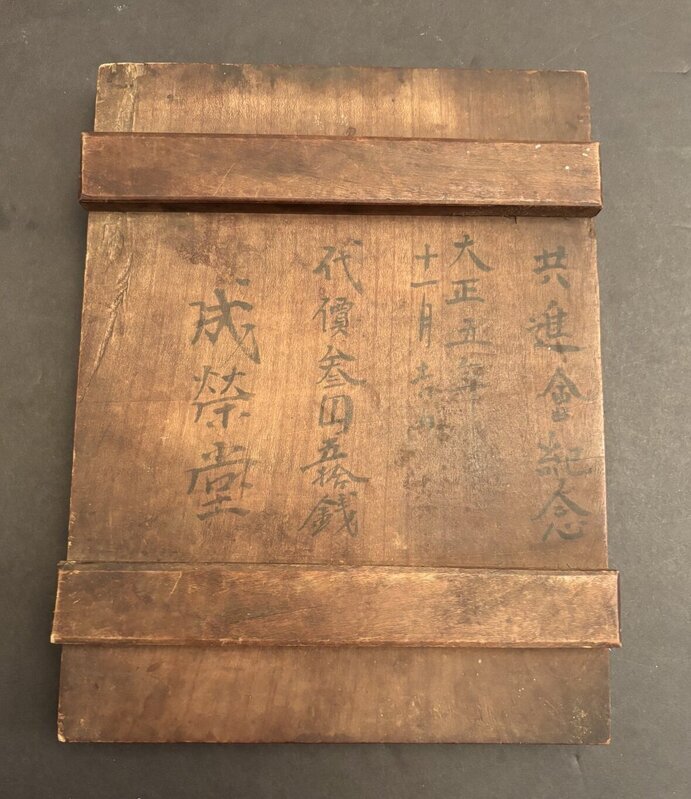 共進會紀念
大正五年
十一月
代價叁円五拾銭
成榮堂